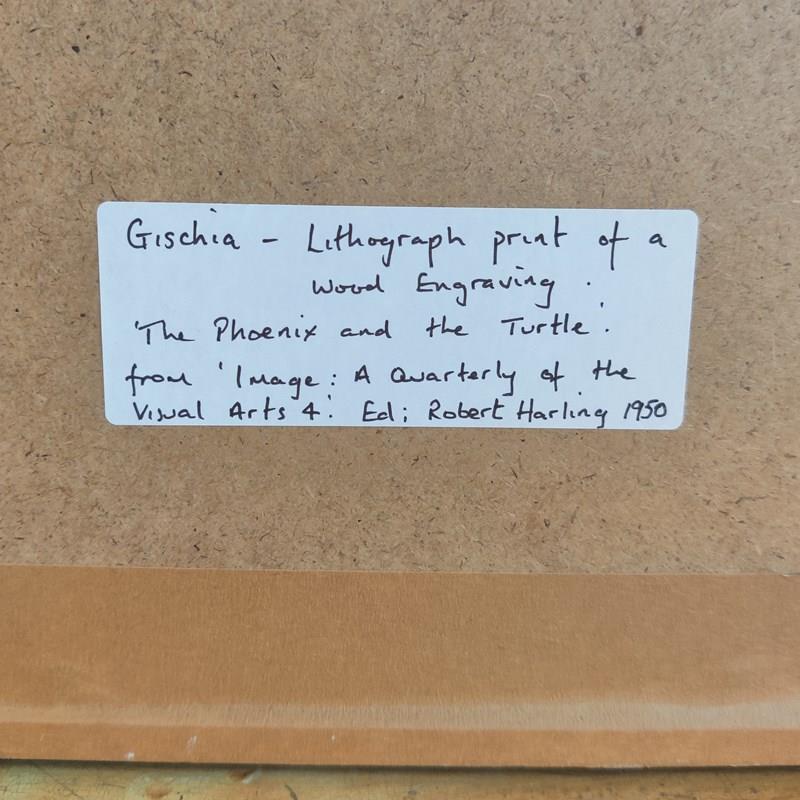 Gischia - Lithograph print of a
Wood Engraving.
'The Phoenix and the Turtle'.
from 'Image: A Quarterly of the
Visual Arts 4'. Ed; Robert Harling 1950